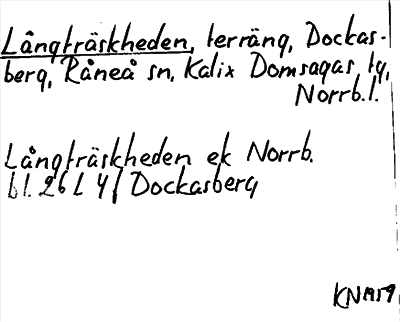 Långträskheden, terräng, Dockas-
berg, Råneå sn, Kalix Domsagas tg,
Norrb. l.
Långträskheden ek Norrb.
bl. 26 L 4 f Dockasberg